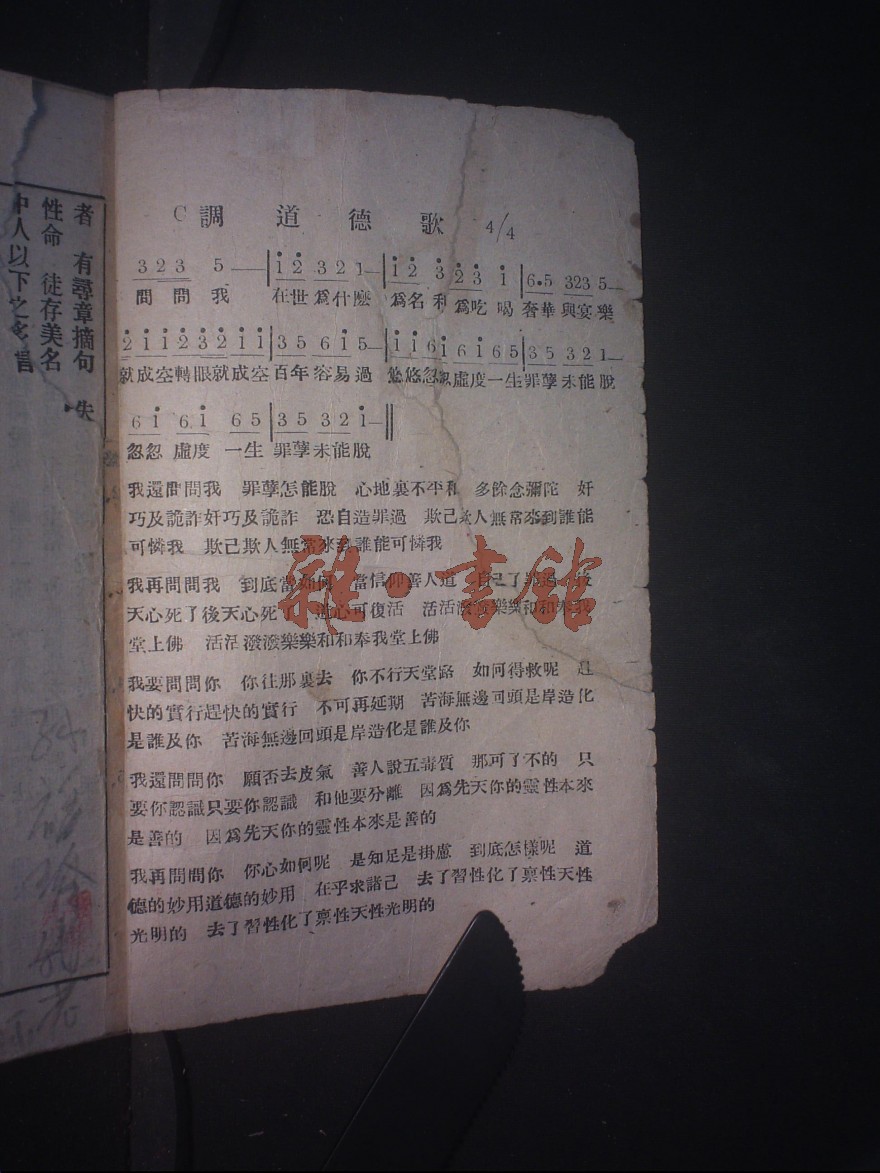 C調 道 德 歌 4/4
3 2 3 5 — | 1 2 3 2 1 — | 1 2 3 2 3 1 | 6.5 323 5 —
問 問 我 在世為什麼 為名利為吃 喝 奢華 與宴 樂
2 1 1 2 3 2 1 1 | 3 5 6 1 5 — | 1 1 6 1 6 1 6 5 | 3 5 3 2 1 —
就成空轉眼就成空 百年容易過 悠悠忽忽虛度一生罪孽未能脫
6 1 6 1 6 5 | 3 5 3 2 1 — ||
忽忽 虛度 一生 罪孽未能脫
我還問問我 罪孽怎能脫 心地裏不平和 多餘念彌陀 奸
巧及詭詐奸巧及詭詐 恐自造罪過 欺己欺人無常來到誰能
可憐我 欺己欺人無常來到誰能可憐我
我再問問我 到底當如何 當信仰善人道 自己了罪過
天心死了後天心死 道心可復活 活活潑潑樂樂和和奉我
堂上佛 活活潑潑樂樂和和奉我堂上佛
我要問問你 你往那裏去 你不行天堂路 如何得救呢 趕
快的實行趕快的實行 不可再延期 苦海無邊回頭是岸造化
是誰及你 苦海無邊回頭是岸造化是誰及你
我還問問你 願否去皮氣 善人說五毒質 那可了不的 只
要你認識只要你認識 和他要分離 因為先天你的靈性本來
是善的 因為先天你的靈性本來是善的
我再問問你 你心如何呢 是知足是掛慮 到底怎樣呢 道
德的妙用道德的妙用 在乎求諸己 去了習性化了禀性天性
光明的 去了習性化了禀性天性光明的
者 有尋章摘句 失
性命 徒存美名
中人以下之
雜·書館